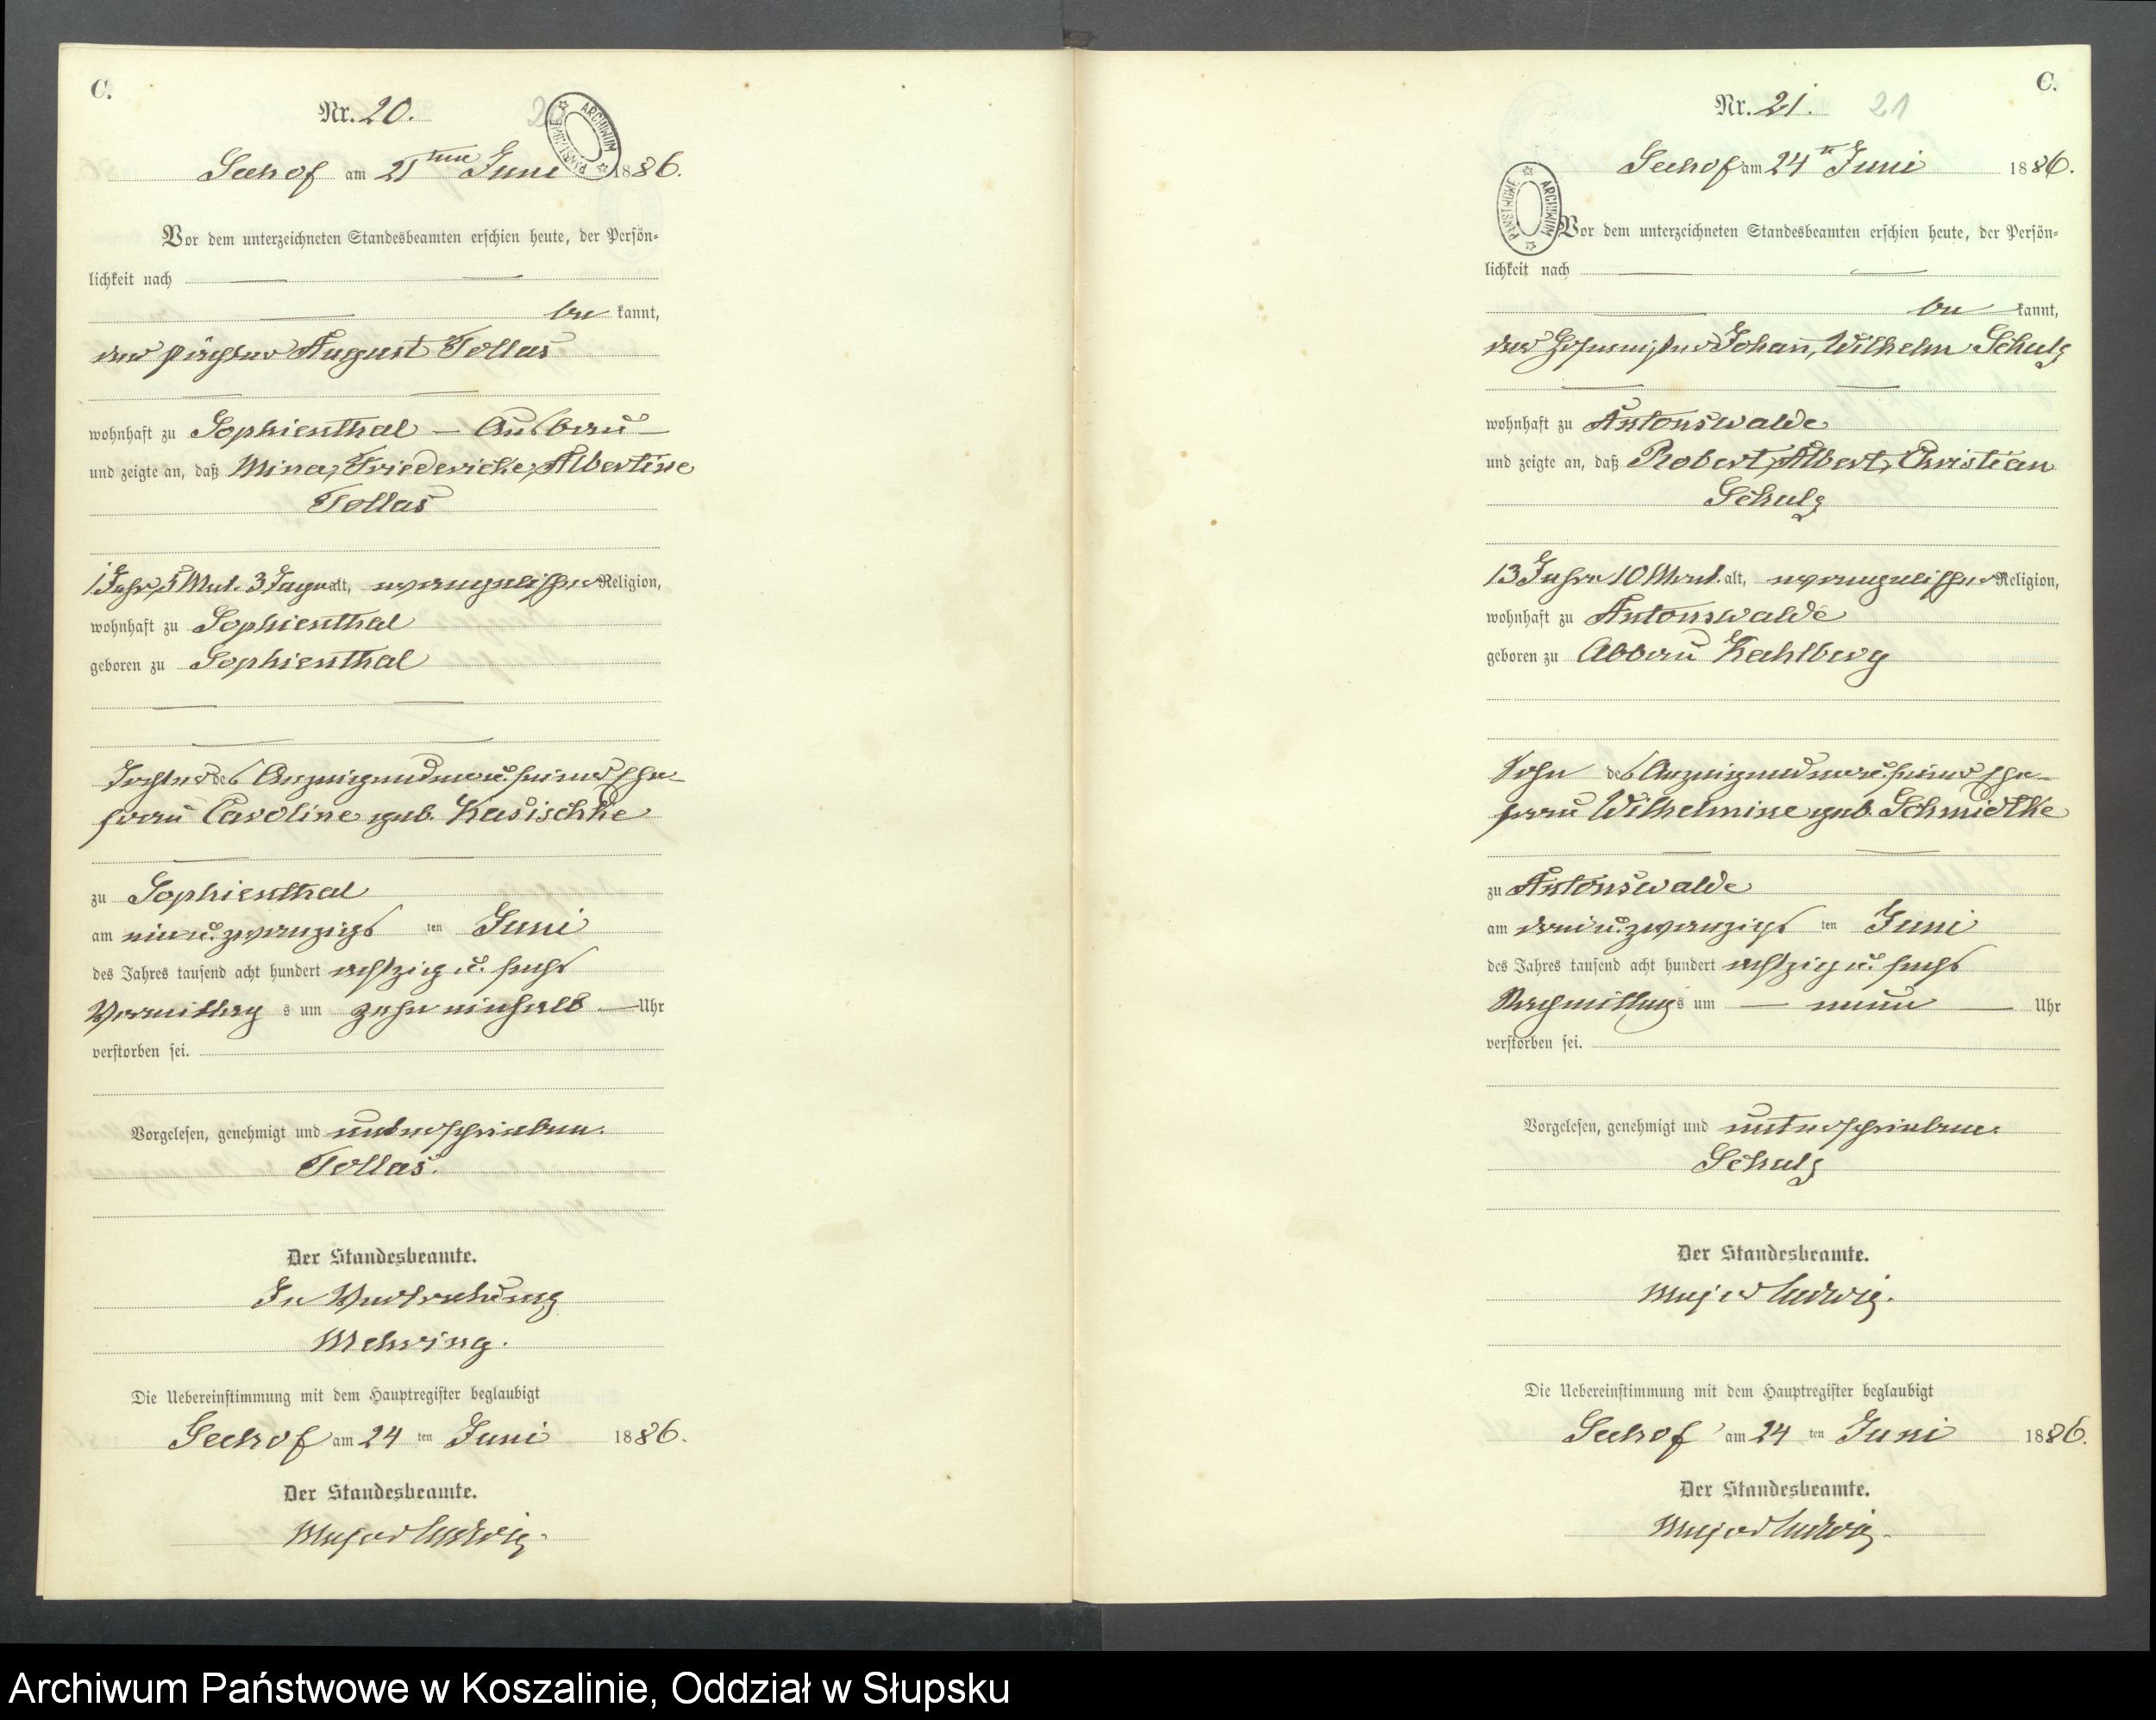 C.
Nr. 20.
20
ARCHIWUM PAŃSTWOWE
Seehof am 21ten Juni 1886.
Vor dem unterzeichneten Standesbeamten erschien heute, der Persön-
lichkeit nach
be kannt,
der Pächter August Tollas
wohnhaft zu Sophienthal – Ausbau –
und zeigte an, daß Mina, Friedericke, Albertine
Tollas
1 Jahr, 5 Mnt. 3 Tage alt, evangelischer Religion,
wohnhaft zu Sophienthal
geboren zu Sophienthal
Tochter des Anzeigenden u. seiner Ehe-
frau Caroline geb. Kasischke
zu Sophienthal
am ein u. zwanzigs ten Juni
des Jahres tausend acht hundert achtzig u. sechs
Vormittag s um zehn einhalb Uhr
verstorben sei.
Vorgelesen, genehmigt und unterschrieben.
Tollas.
Der Standesbeamte.
In Vertretung
Mehring.
Die Uebereinstimmung mit dem Hauptregister beglaubigt
Seehof am 24 ten Juni 1886.
Der Standesbeamte.
Major Ludwig.
C.
Nr. 21.
21
ARCHIWUM PAŃSTWOWE
Seehof am 24t Juni 1886.
Vor dem unterzeichneten Standesbeamten erschien heute, der Persön-
lichkeit nach
be kannt,
der Hofmeister Johann, Wilhelm Schulz
wohnhaft zu Antonswalde
und zeigte an, daß Robert, Albert, Christian
Schulz
13 Jahre 10 Mont. alt, evangelischer Religion,
wohnhaft zu Antonswalde
geboren zu Abbau Kahlberg
Sohn des Anzeigenden u. seiner Ehe-
frau Wilhelmine geb. Schmidtke
zu Antonswalde
am drei u. zwanzigs ten Juni
des Jahres tausend acht hundert achtzig u. sechs
Nachmittags um — neun — Uhr
verstorben sei.
Vorgelesen, genehmigt und unterschrieben.
Schulz
Der Standesbeamte.
Major Ludwig.
Die Uebereinstimmung mit dem Hauptregister beglaubigt
Seehof am 24 ten Juni 1886.
Der Standesbeamte.
Major Ludwig.
Archiwum Państwowe w Koszalinie, Oddział w Słupsku